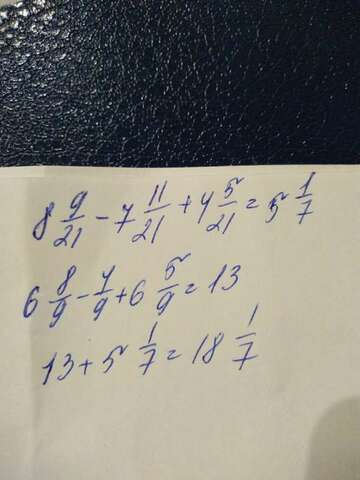 8 9/21 - 7 11/21 + 4 5/21 = 5 1/7
6 8/9 - 4/9 + 6 5/9 = 13
13 + 5 1/7 = 18 1/7